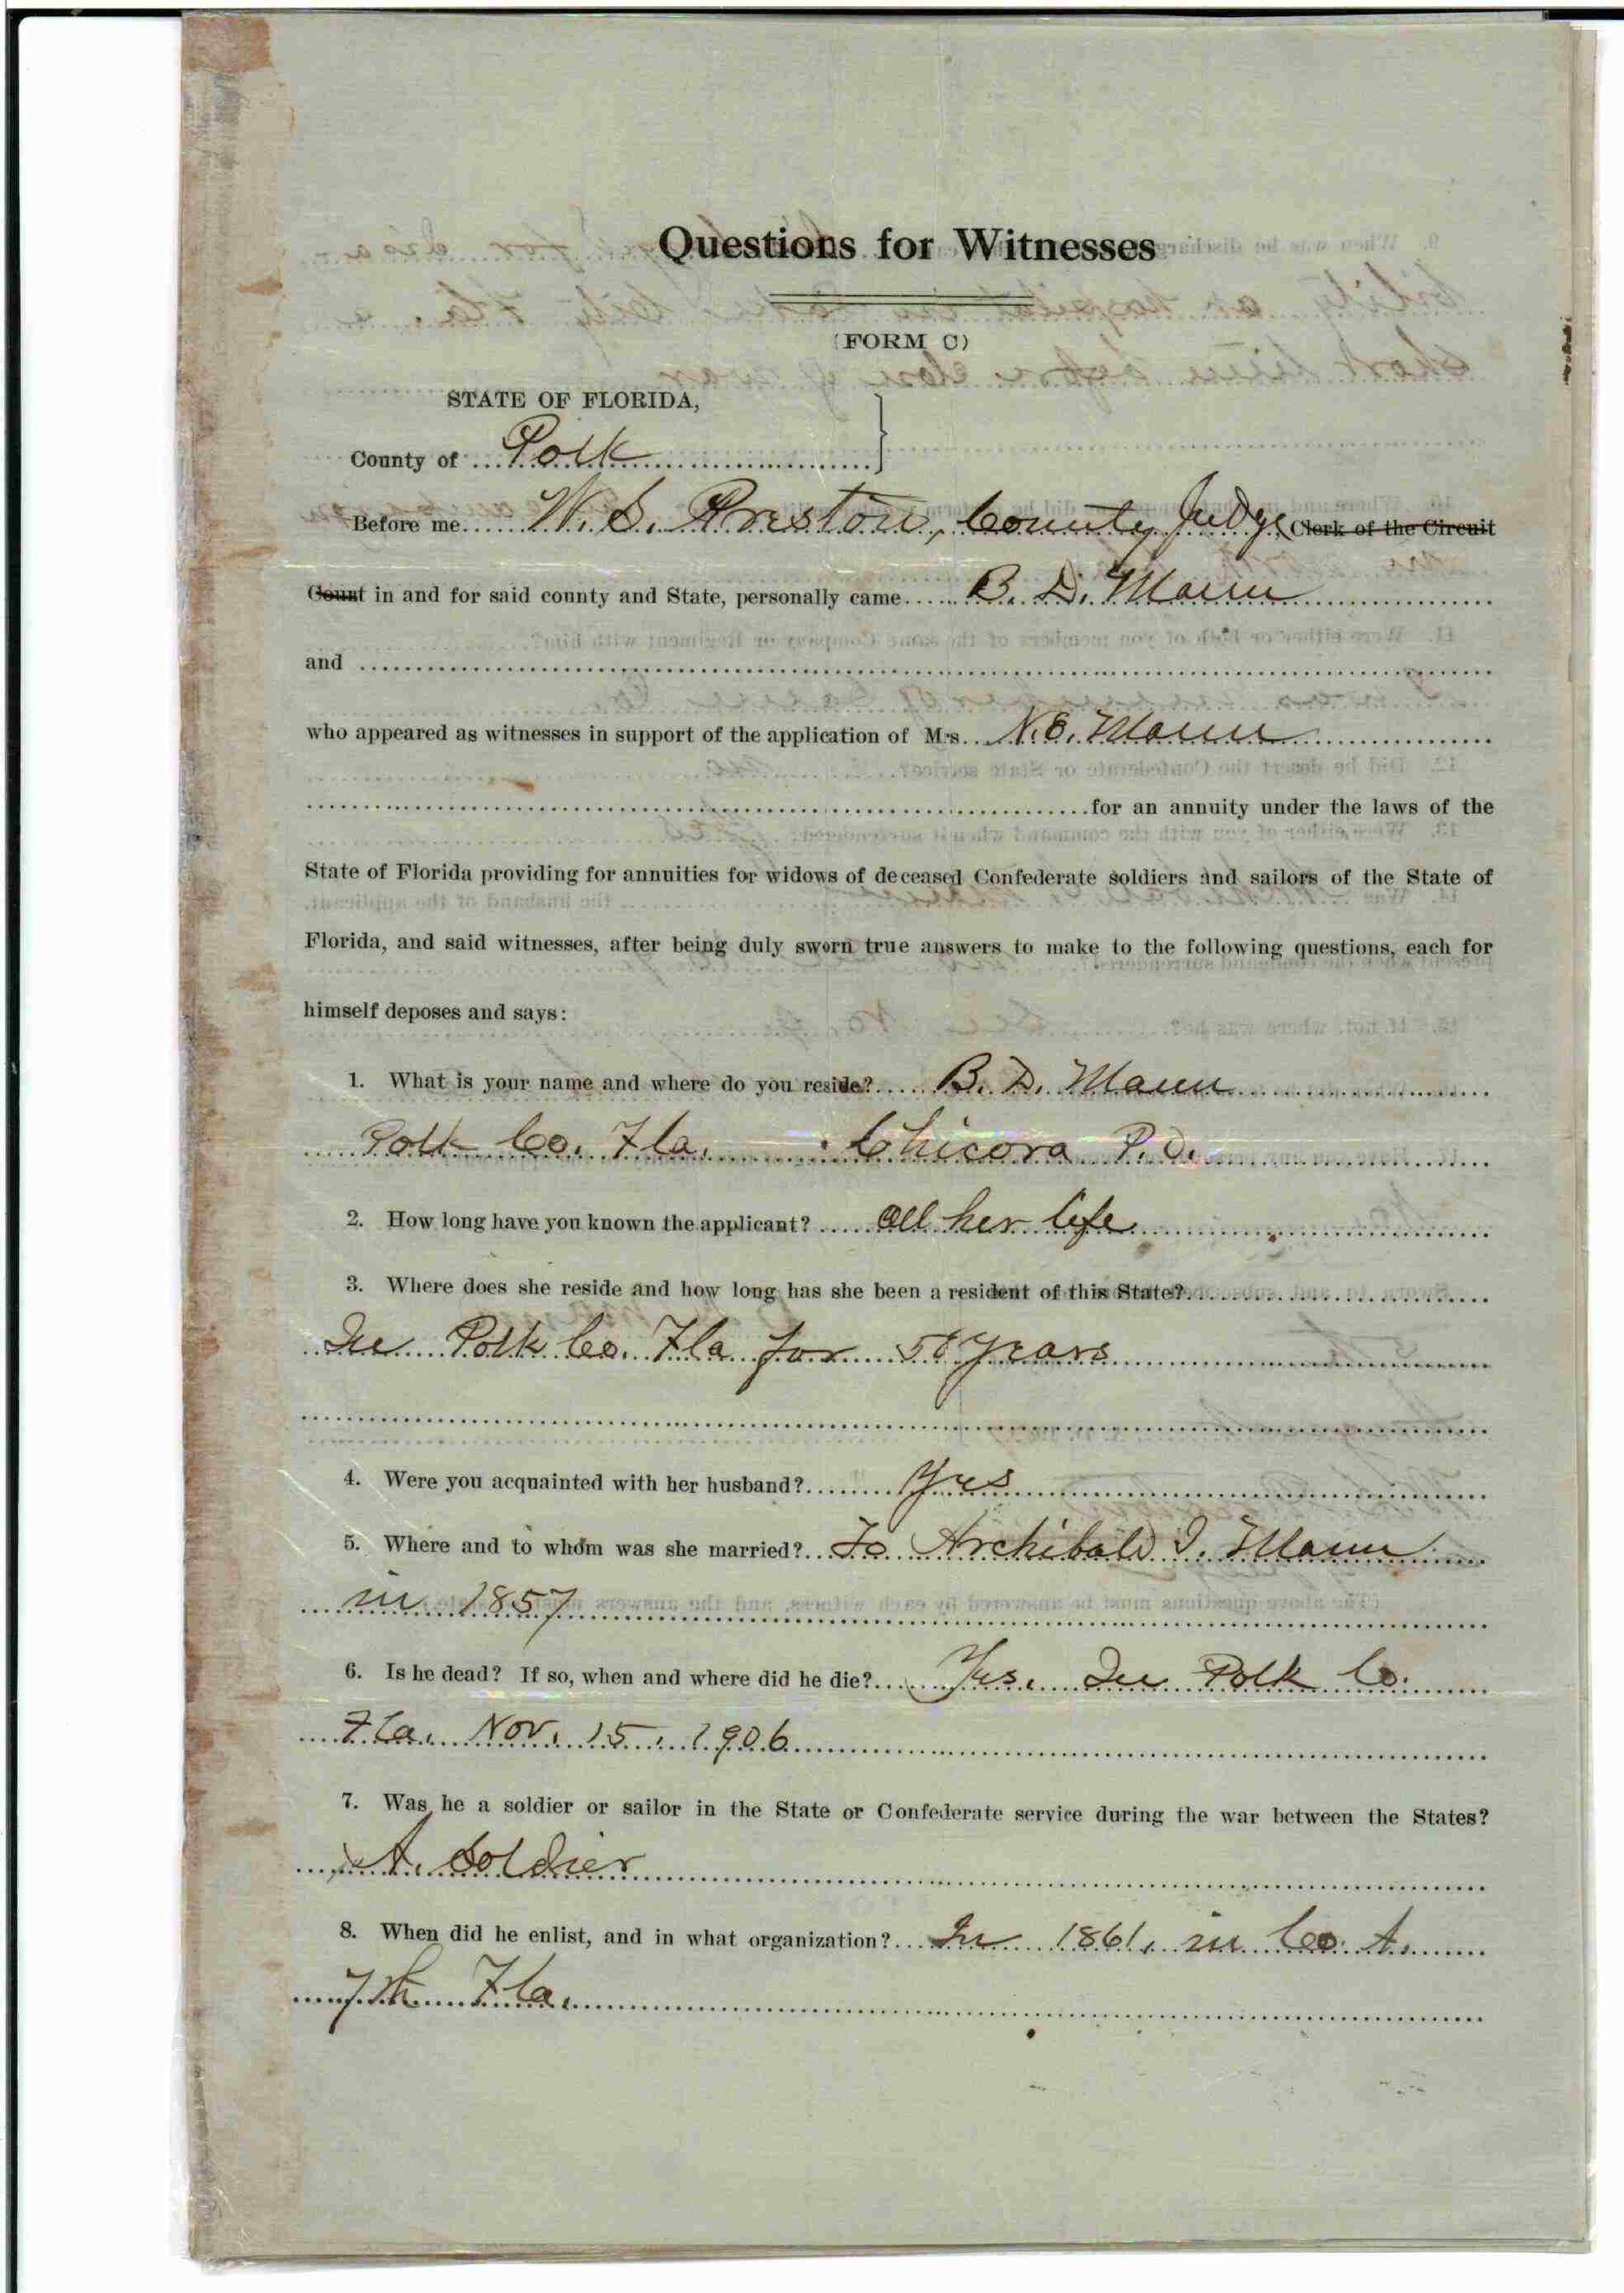 Questions for Witnesses
(FORM C)
STATE OF FLORIDA,
County of Polk
Before me W. S. Preston, County Judge, Clerk of the Circuit
Court in and for said county and State, personally came B. D. Mann
and
who appeared as witnesses in support of the application of Mrs. N. E. Mann
for an annuity under the laws of the
State of Florida providing for annuities for widows of deceased Confederate soldiers and sailors of the State of
Florida, and said witnesses, after being duly sworn true answers to make to the following questions, each for
himself deposes and says:
1. What is your name and where do you reside? B. D. Mann
Polk Co. Fla. Chicora P. O.
2. How long have you known the applicant? all her life
3. Where does she reside and how long has she been a resident of this State?
In Polk Co. Fla for years
4. Were you acquainted with her husband? Yes
5. Where and to whom was she married? To Archibald I. Mann
in 1857
6. Is he dead? If so, when and where did he die? Yes. In Polk Co.
Fla. Nov. 15, 1906
7. Was he a soldier or sailor in the State or Confederate service during the war between the States?
A. Soldier
8. When did he enlist, and in what organization? In 1861, in Co. A.
7th Fla.